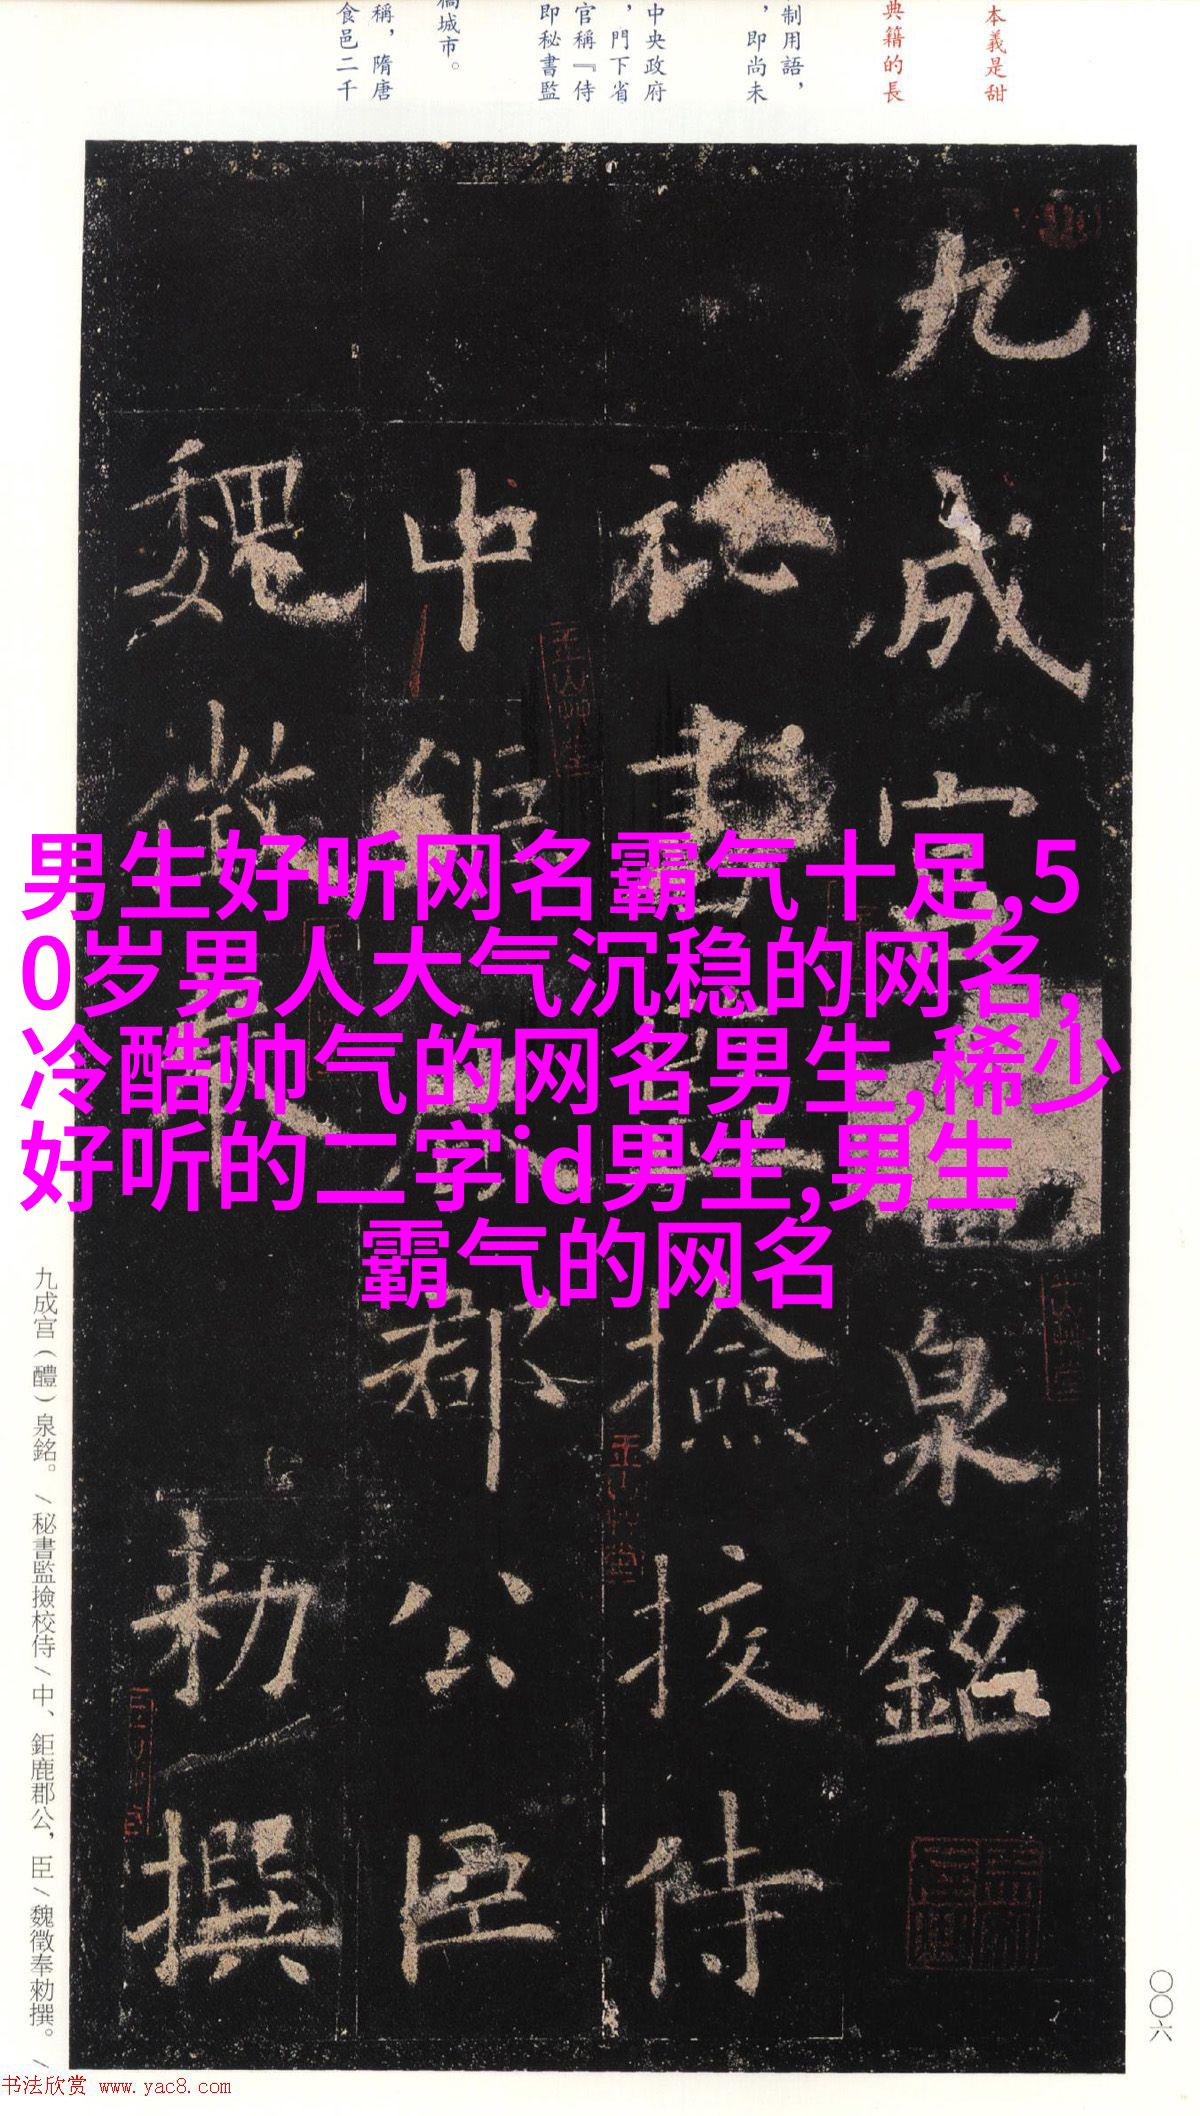 本義是甜
典籍的長
制用語，
，即尚未
中央政府
，門下省
官稱『侍
即秘書監
城市。
稱，隋唐
食邑二千
九成宫醴泉銘
秘書監撿挍侍
中鉅鹿郡公臣
魏徵奉勑撰
男生好听网名霸气十足,5
0岁男人大气沉稳的网名,
冷酷帅气的网名男生,稀少
好听的二字id男生,男生
霸气的网名
九成宫（醴）泉銘。/秘書監撿校侍/中、鉅鹿郡公，臣/魏徵奉勑撰。/
〇〇六
书法欣赏 www.yac8.com